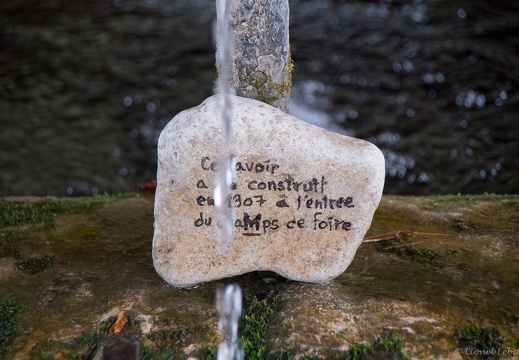 Ce lavoir
a été construit
en 1907 à l'entrée
du chaMps de foire
© Lionel Leba